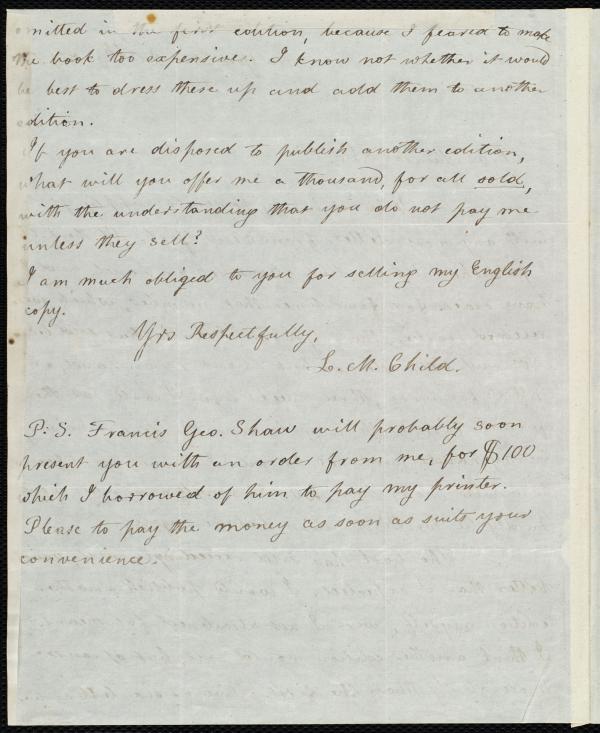 omitted in the first edition, because I feared to make
the book too expensive. I know not whether it would
be best to dress these up and add them to another
edition.
If you are disposed to publish another edition,
what will you offer me a thousand, for all sold,
with the understanding that you do not pay me
unless they sell?
I am much obliged to you for selling my English
copy.
Yrs Respectfully,
L. M. Child.
P: S. Francis Geo. Shaw will probably soon
present you with an order from me, for $100
which I borrowed of him to pay my printer.
Please to pay the money as soon as suits your
convenience.